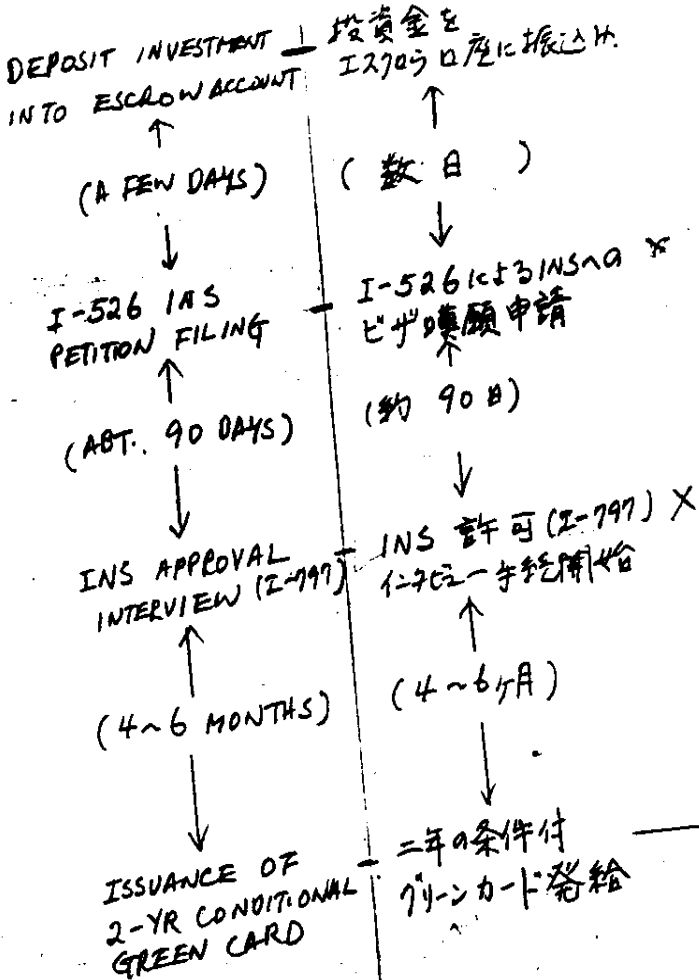 DEPOSIT INVESTMENT
INTO ESCROW ACCOUNT
(A FEW DAYS)
I-526 INS
PETITION FILING
(ABT. 90 DAYS)
INS APPROVAL
INTERVIEW (I-797)
(4~6 MONTHS)
ISSUANCE OF
2-YR CONDITIONAL
GREEN CARD
投資金を
エスクロウ口座に振込み.
(数日)
I-526によるINSへの ×
ビザ嘆願申請
(約 90日)
INS 許可(I-797) ×
インタビュー手続開始
(4~6ヶ月)
二年の条件付
グリーンカード発給